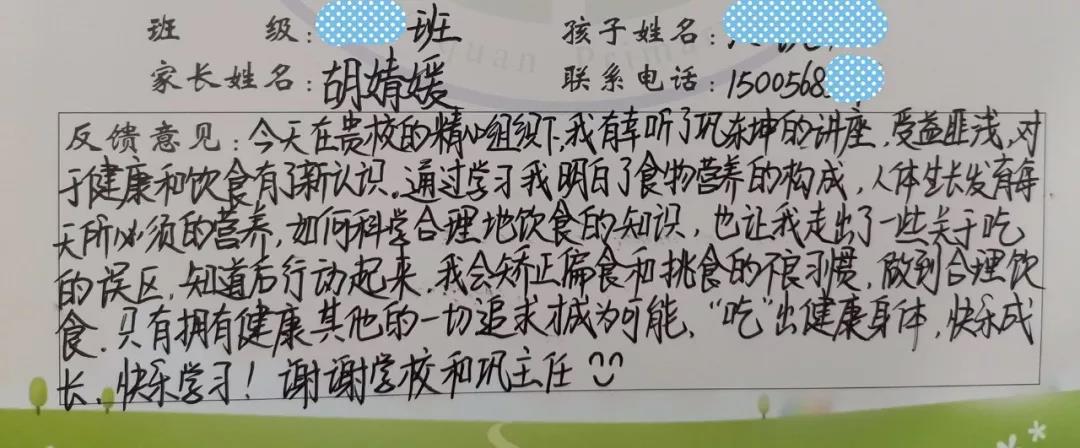 班 级: 班 孩子姓名:
家长姓名: 胡婧媛 联系电话: 1500568
反馈意见:今天在贵校的精心组织下,我有幸听了巩东坤的讲座,受益匪浅,对
于健康和饮食有了新认识。通过学习我明白了食物营养的构成,人体生长发育每
天所必须的营养,如何科学合理地饮食的知识,也让我走出了一些关于吃
的误区,知道后行动起来,我会矫正偏食和挑食的不良习惯,做到合理饮
食.只有拥有健康其他的一切追求才成为可能,“吃”出健康身体,快乐成
长、快乐学习!谢谢学校和巩主任